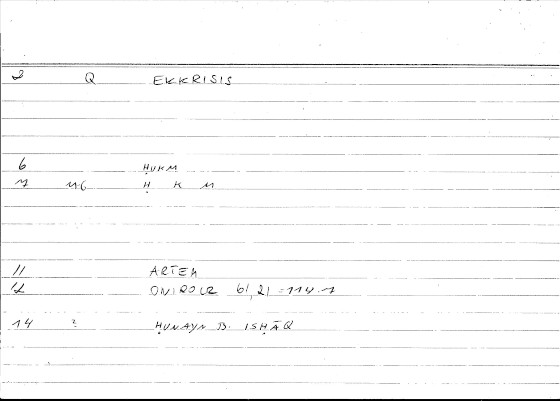 2 Q EKKRISIS
6 ḤUKM
7 MG Ḥ K M
11 ARTEM
12 ONIROCR 61,21 = 114.1
14 ? ḤUNAYN B. ISḤĀQ